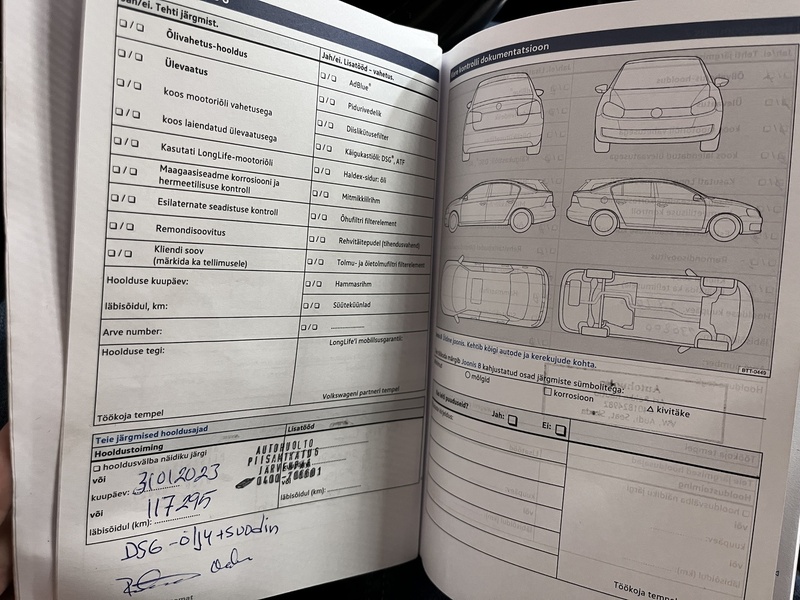 Jah/ei. Tehti järgmist.
Õlivahetus-hooldus
Ülevaatus
koos mootoriõli vahetusega
koos laiendatud ülevaatusega
Kasutati LongLife-mootoriõli
Maagaasiseadme korrosiooni ja
hermeetilisuse kontroll
Esilaternate seadistuse kontroll
Remondisoovitus
Kliendi soov
(märkida ka tellimusele)
Hoolduse kuupäev:
läbisõidul, km:
Arve number:
Hoolduse tegi:
Töökoja tempel
Jah/ei. Lisatööd – vahetus.
AdBlue®
Pidurivedelik
Diislikütusefilter
Käigukastiõli: DSG®, ATF
Haldex-sidur: õli
Mitmikkiilrihm
Õhufiltri filterelement
Rehvitäitepudel (tihendusvahend)
Tolmu- ja õietolmufiltri filterelement
Hammasrihm
Süüteküünlad
LongLife'i mobiilsusgarantii:
Volkswageni partneri tempel
Teie järgmised hooldusajad
Hooldustoiming
Lisatööd
hooldusvälba näidiku järgi
või
kuupäev: 31.01.2023
või
117295
läbisõidul (km):
AUTOHUOLTO
PIISANKATU 6
JÄRVENPÄÄ
läbisõidul (km):
DSG-öljy+suodin
kontrolli dokumentatsioon
BTT-0449
joonis. Kehtib kõigi autode ja kerekujude kohta.
märgib Joonis 8 kahjustatud osad järgmiste sümbolitega:
mõlgid
korrosioon
kivitäke
puuduseid?
Jah:
Ei:
Töökoja tempel